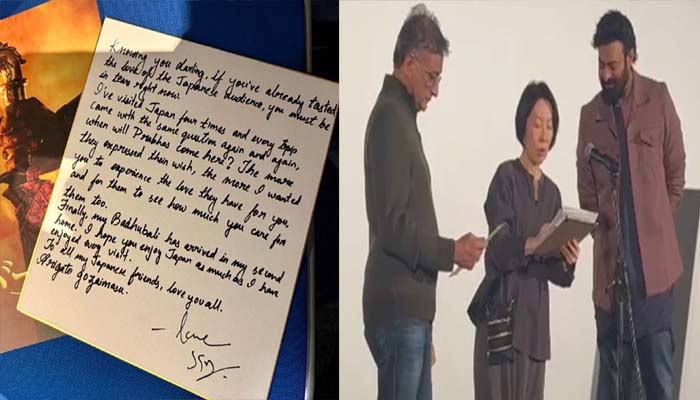 Knowing you darling, if you've already tasted
the love of the Japanese audience, you must be
in tears right now.
I've visited Japan four times and every trip
came with the same question again and again,
when will Prabhas come here? The more
they expressed their wish, the more I wanted
you to experience the love they have for you,
and for them to see how much you care for
them too.
Finally, my Baahubali has arrived in my second
home. I hope you enjoy Japan as much as I have
enjoyed every visit.
To all my Japanese friends, love you all.
Arigato gozaimasu.
- love
SSR.